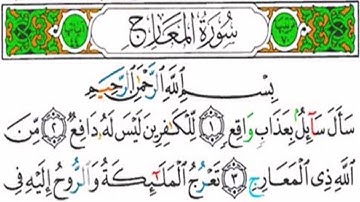 سُورَةُ المَعَارِجِ
بِسْمِ ٱللَّهِ ٱلرَّحْمَٰنِ ٱلرَّحِيمِ
سَأَلَ سَآئِلٌۢ بِعَذَابٍ وَاقِعٍ ١ لِّلْكَٰفِرِينَ لَيْسَ لَهُۥ دَافِعٌ ٢ مِّنَ
ٱللَّهِ ذِى ٱلْمَعَارِجِ ٣ تَعْرُجُ ٱلْمَلَٰٓئِكَةُ وَٱلرُّوحُ إِلَيْهِ فِى